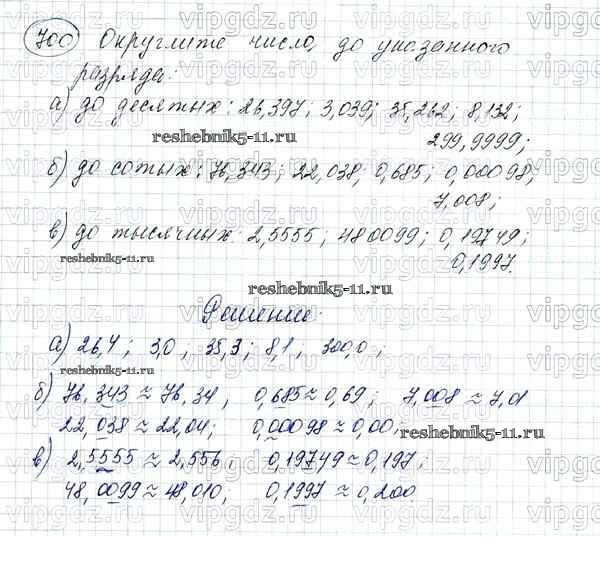 700 Округлите число, до указанного
разряда:
а) до десятых: 26,397; 3,039; 35,262; 8,132;
reshebnik5-11.ru
299,9999;
б) до сотых: 76,343; 22,038; 0,685; 0,00098;
7,008;
в) до тысячных: 2,5555; 480099; 0,19749;
reshebnik5-11.ru
0,1997.
reshebnik5-11.ru
Решение:
а) 26,4; 3,0; 35,3; 8,1, 300,0;
reshebnik5-11.ru
б) 76,343 ≈ 76,34, 0,685 ≈ 0,69; 7,008 ≈ 7,01
22,038 ≈ 22,04; 0,00098 ≈ 0,00,
reshebnik5-11.ru
в) 2,5555 ≈ 2,556, 0,19749 ≈ 0,197;
48,0099 ≈ 48,010, 0,1997 ≈ 0,200